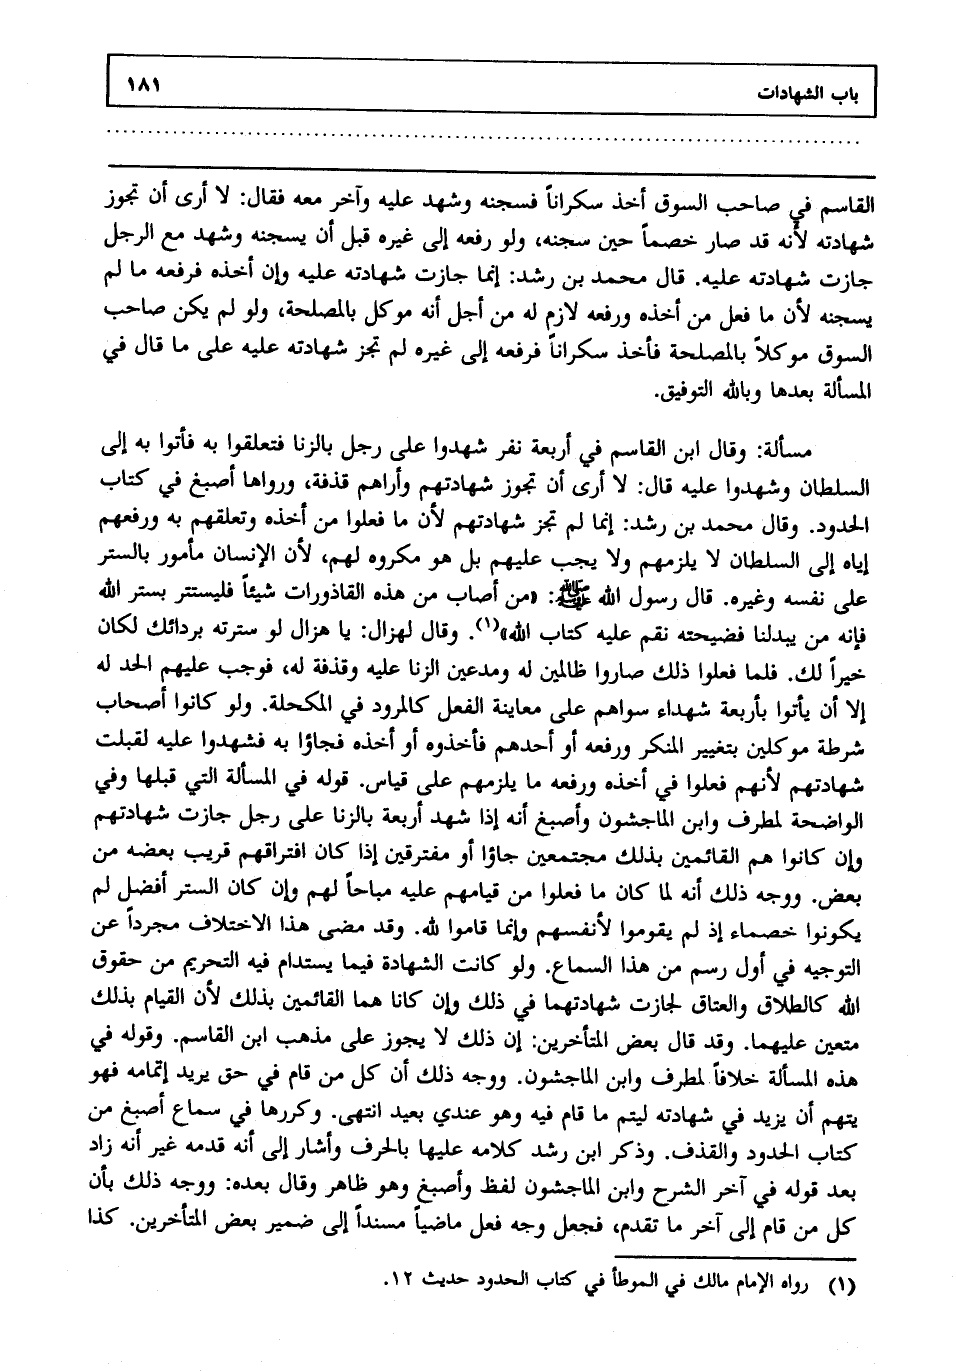 باب الشهادات ١٨١
القاسم في صاحب السوق أخذ سكراناً فسجنه وشهد عليه وآخر معه فقال: لا أرى أن تجوز
شهادته لأنه قد صار خصماً حين سجنه، ولو رفعه إلى غيره قبل أن يسجنه وشهد مع الرجل
جازت شهادته عليه. قال محمد بن رشد: إنما جازت شهادته عليه وإن أخذه فرفعه ما لم
يسجنه لأن ما فعل من أخذه ورفعه لازم له من أجل أنه موكل بالمصلحة، ولو لم يكن صاحب
السوق موكلاً بالمصلحة فأخذ سكراناً فرفعه إلى غيره لم تجز شهادته عليه على ما قال في
المسألة بعدها وبالله التوفيق.
مسألة: وقال ابن القاسم في أربعة نفر شهدوا على رجل بالزنا فتعلقوا به فأتوا به إلى
السلطان وشهدوا عليه قال: لا أرى أن تجوز شهادتهم وأراهم قذفة، ورواها أصبغ في كتاب
الحدود. وقال محمد بن رشد: إنما لم تجز شهادتهم لأن ما فعلوا من أخذه وتعلقهم به ورفعهم
إياه إلى السلطان لا يلزمهم ولا يجب عليهم بل هو مكروه لهم، لأن الإنسان مأمور بالستر
على نفسه وغيره. قال رسول الله ﷺ: «من أصاب من هذه القاذورات شيئاً فليستتر بستر الله
فإنه من يبدلنا فضيحته نقم عليه كتاب الله»(١). وقال لهزال: يا هزال لو سترته بردائك لكان
خيراً لك. فلما فعلوا ذلك صاروا ظالمين له ومدعين الزنا عليه وقذفة له، فوجب عليهم الحد له
إلا أن يأتوا بأربعة شهداء سواهم على معاينة الفعل كالمرود في المكحلة. ولو كانوا أصحاب
شرطة موكلين بتغيير المنكر ورفعه أو أحدهم فأخذوه أو أخذه فجاؤا به فشهدوا عليه لقبلت
شهادتهم لأنهم فعلوا في أخذه ورفعه ما يلزمهم على قياس. قوله في المسألة التي قبلها وفي
الواضحة لمطرف وابن الماجشون وأصبغ أنه إذا شهد أربعة بالزنا على رجل جازت شهادتهم
وإن كانوا هم القائمين بذلك مجتمعين جاؤا أو مفترقين إذا كان افتراقهم قريب بعضه من
بعض. ووجه ذلك أنه لما كان ما فعلوا من قيامهم عليه مباحاً لهم وإن كان الستر أفضل لم
يكونوا خصماء إذ لم يقوموا لأنفسهم وإنما قاموا لله. وقد مضى هذا الاختلاف مجرداً عن
التوجيه في أول رسم من هذا السماع. ولو كانت الشهادة فيما يستدام فيه التحريم من حقوق
الله كالطلاق والعتاق لجازت شهادتهما في ذلك وإن كانا هما القائمين بذلك لأن القيام بذلك
متعين عليهما. وقد قال بعض المتأخرين: إن ذلك لا يجوز على مذهب ابن القاسم. وقوله في
هذه المسألة خلافاً لمطرف وابن الماجشون. ووجه ذلك أن كل من قام في حق يريد إتمامه فهو
يتهم أن يزيد في شهادته ليتم ما قام فيه وهو عندي بعيد انتهى. وكررها في سماع أصبغ من
كتاب الحدود والقذف. وذكر ابن رشد كلامه عليها بالحرف وأشار إلى أنه قدمه غير أنه زاد
بعد قوله في آخر الشرح وابن الماجشون لفظ وأصبغ وهو ظاهر وقال بعده: ووجه ذلك بأن
كل من قام إلى آخر ما تقدم، فجعل وجه فعل ماضياً مسنداً إلى ضمير بعض المتأخرين. كذا
(١) رواه الإمام مالك في الموطأ في كتاب الحدود حديث ١٢.